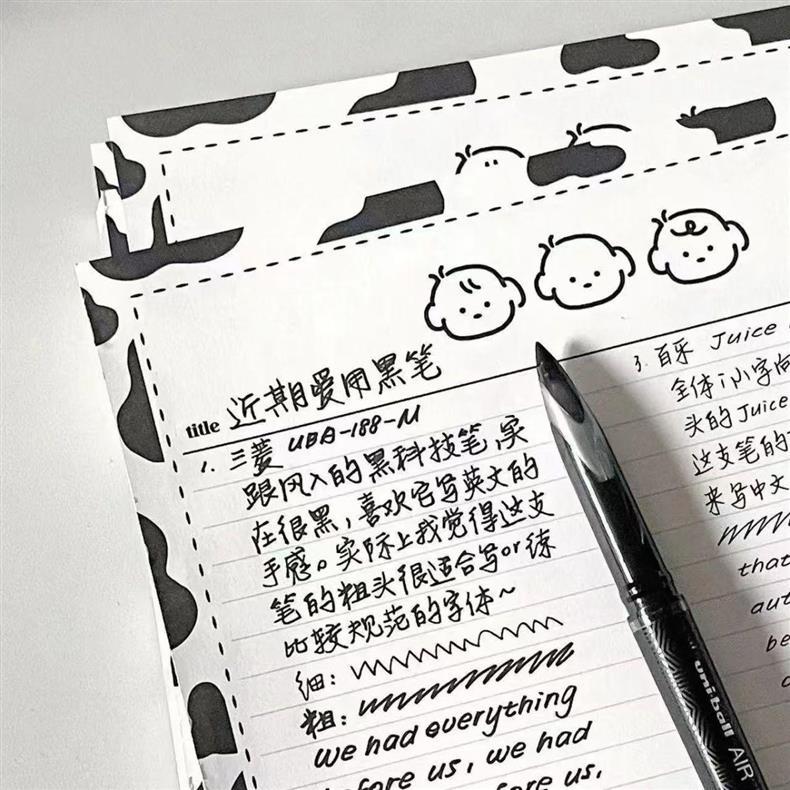 title 近期爱用黑笔
1. 三菱 UBA-188-M
跟风入的黑科技笔,实
在很黑,喜欢它写英文的
手感。实际上我觉得这支
笔的粗头很适合写or练
比较规范的字体~
细:
粗:
We had everything
before us, we had
before us,
3. 百乐 Juice
全体i小字
头的Juice
这支笔的
来写中文
that
aut
be
uni-ball AIR